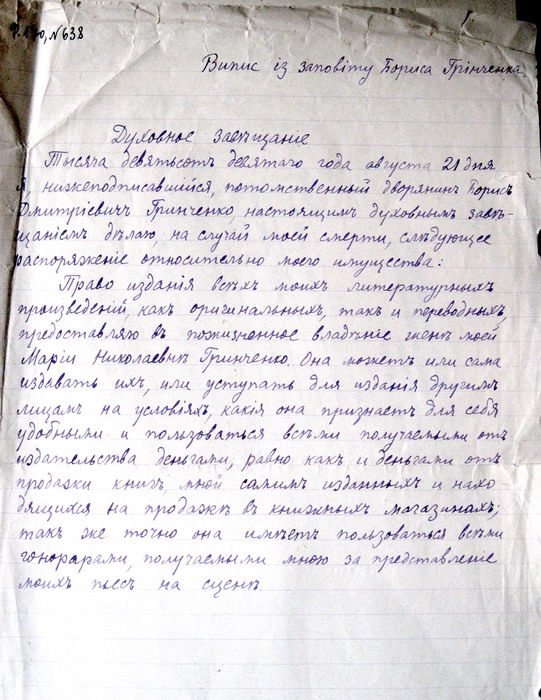 Ф. 170, № 638
Випис із заповіту Бориса Грінченка.
Духовное завѣщаніе
Тысяча девятьсотъ девятаго года августа 21 дня
я, нижеподписавшійся, потомственный дворянинъ Борисъ
Дмитріевичъ Гринченко, настоящимъ духовнымъ завѣ-
щаніемъ дѣлаю, на случай моей смерти, слѣдующее
распоряженіе относительно моего имущества:
Право изданія всѣхъ моихъ литературныхъ
произведеній, какъ оригинальныхъ, такъ и переводныхъ,
предоставляю въ пожизненное владѣніе женѣ моей
Маріи Николаевнѣ Гринченко. Она можетъ или сама
издавать ихъ, или уступать для изданія другимъ
лицамъ на условіяхъ, какія она признаетъ для себя
удобными и пользоваться всѣми получаемыми отъ
издательства деньгами, равно какъ и деньгами отъ
продажи книгъ, мной самимъ изданныхъ и нахо-
дящихся на продажѣ въ книжныхъ магазинахъ;
такъ же точно она имѣетъ пользоваться всѣми
гонорарами, получаемыми мною за представленіе
моихъ пьесъ на сценѣ.